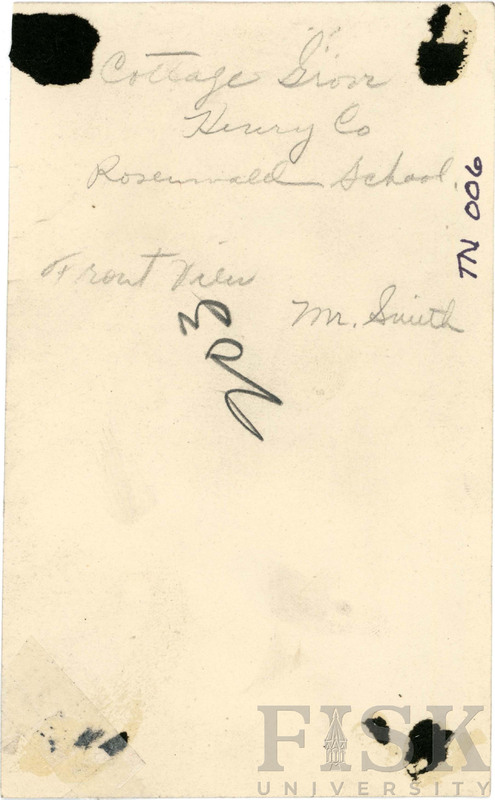 Cottage Grove
Henry Co
Rosenwald School.
Front View
Mr. Smith
203
TN 006
FISK
UNIVERSITY